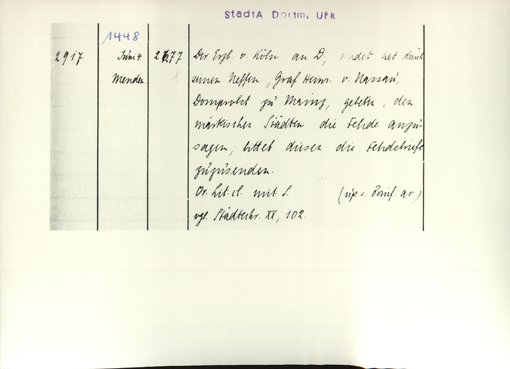 StadtA Dortm, Urk
1448
2917 Juni 4 2677 Der Erzb. v. Köln an D, endet hat durch
Menden seinen Neffen, Graf Heinr. v. Nassau,
Domprobst zu Mainz, gebeten, den
märkischen Städten die Fehde anzu-
sagen; bittet diesen die Fehdebriefe
zuzusenden.
Or. lit. cl. mit S.
vgl. Städtechr. XX, 102.